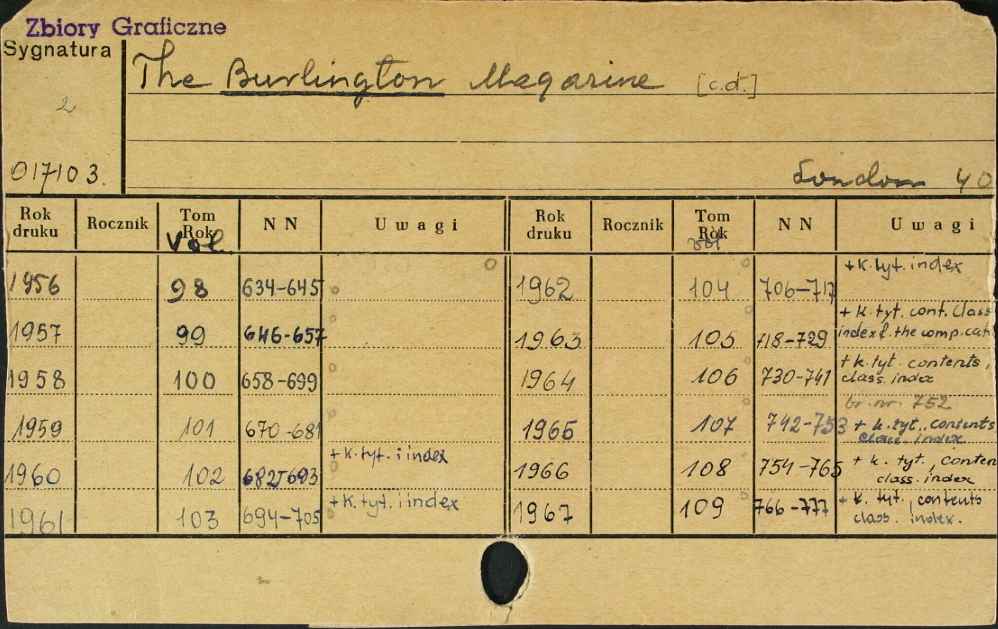 Zbiory Graficzne
Sygnatura
The Burlington Magazine [c.d.]
2
017103.
London 40
Rok druku Rocznik Tom Rok N N Uwagi Rok druku Rocznik Tom Rok N N Uwagi
Vol. vol
1956 98 634-645 1962 104 706-717 +k.tyt. index
1957 99 646-657 1963 105 718-729 + k.tyt. cont. class index & the comp. cat
1958 100 658-699 1964 106 730-741 +k.tyt. contents, class. index
1959 101 670-681 1965 107 742-753 br. nr. 752 + k.tyt., contents class. index
1960 102 682-693 +k.tyt. i index 1966 108 754-765 + k. tyt., conten class. index
1961 103 694-705 +k.tyt. i index 1967 109 766-777 + k. tyt., contents class. index.